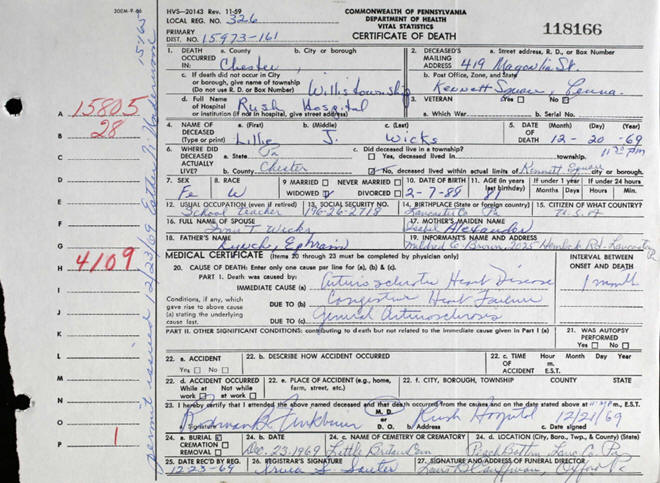 30EM-9-66
HVS-20143 Rev. 11-59
LOCAL REG. NO. 326
PRIMARY
DIST. NO. 15973-161
COMMONWEALTH OF PENNSYLVANIA
DEPARTMENT OF HEALTH
VITAL STATISTICS
CERTIFICATE OF DEATH
118166
1. DEATH OCCURRED IN
a. County
b. City or borough
Chester
c. If death did not occur in City or borough, give name of township (Do not use R. D. or Box Number)
Willistownship
d. Full Name of Hospital or institution (if not in hospital, give street address)
Rush Hospital
2. DECEASED'S MAILING ADDRESS
a. Street address, R. D., or Box Number
419 Magnolia St.
b. Post Office, Zone, and State
Kennett Square, Penna.
3. VETERAN
Yes No
a. Which War
b. Serial No.
4. NAME OF DECEASED (Type or print)
a. (First) b. (Middle) c. (Last)
Lillie J. Wicks
5. DATE OF DEATH
Month Day Year
12-20-69
6. WHERE DID DECEASED ACTUALLY LIVE?
a. State Pa
b. County Chester
c. Did deceased live in a township?
Yes, deceased lived in township.
No, deceased lived within actual limits of Kennett Square city or borough.
7. SEX
Fe
8. RACE
W
9 MARRIED NEVER MARRIED
WIDOWED DIVORCED
10. DATE OF BIRTH
2-7-88
11. AGE (in years last birthday)
If under 1 year
Months Days
If under 24 hours
Hours Min.
12. USUAL OCCUPATION (even if retired)
School Teacher
13. SOCIAL SECURITY NO.
196-26-2718
14. BIRTHPLACE (State or foreign country)
Lancaster Co Pa
15. CITIZEN OF WHAT COUNTRY?
U.S.A
16. FULL NAME OF SPOUSE
T. Wicks
17. MOTHER'S MAIDEN NAME
Alexander
18. FATHER'S NAME
Ephraim
19. INFORMANT'S NAME AND ADDRESS
Mildred C Brown, 2025 Hemlock Rd. Lancaster
MEDICAL CERTIFICATE (Items 20 through 23 must be completed by physician only)
INTERVAL BETWEEN ONSET AND DEATH
20. CAUSE OF DEATH: Enter only one cause per line for (a), (b), & (c).
PART 1. Death was caused by:
IMMEDIATE CAUSE (a) Heart Disease
1 month
Conditions, if any, which gave rise to above cause (a) stating the underlying cause last.
DUE TO (b) Congestive Heart Failure
DUE TO (c) General Arteriosclerosis
PART II. OTHER SIGNIFICANT CONDITIONS: contributing to death but not related to the immediate cause given in Part I (a)
21. WAS AUTOPSY PERFORMED
Yes No
22. a. ACCIDENT
Yes No
22. b. DESCRIBE HOW ACCIDENT OCCURRED
22. c. TIME OF ACCIDENT
Hour Month Day Year
m.
E.S.T.
22. d. ACCIDENT OCCURRED
While at work Not while at work
22. e. PLACE OF ACCIDENT (e.g., home, farm, street, etc.)
22. f. CITY, BOROUGH, TOWNSHIP COUNTY STATE
23. I hereby certify that I attended the above named deceased and that death occurred from the causes and on the date stated above at m., E.S.T.
Signature
M. D. or D. O.
Rush Hospital
b. Address
12/21/69
c. Date signed
24. a. BURIAL
CREMATION
REMOVAL
24. b. DATE
Dec. 23, 1969
24. c. NAME OF CEMETERY OR CREMATORY
Little Britain Cem
24. d. LOCATION (City, Boro, Twp., & County) (State)
Peach Bottom Lanc Co. Pa
25. DATE REC'D BY REG.
12-23-69
26. REGISTRAR'S SIGNATURE
27. SIGNATURE AND ADDRESS OF FUNERAL DIRECTOR
Oxford Pa
A 15805
B 28
C
D
E
F
G
H 4109
I
J
K
L
M
N
O
P 1
permit issued 12/23/69